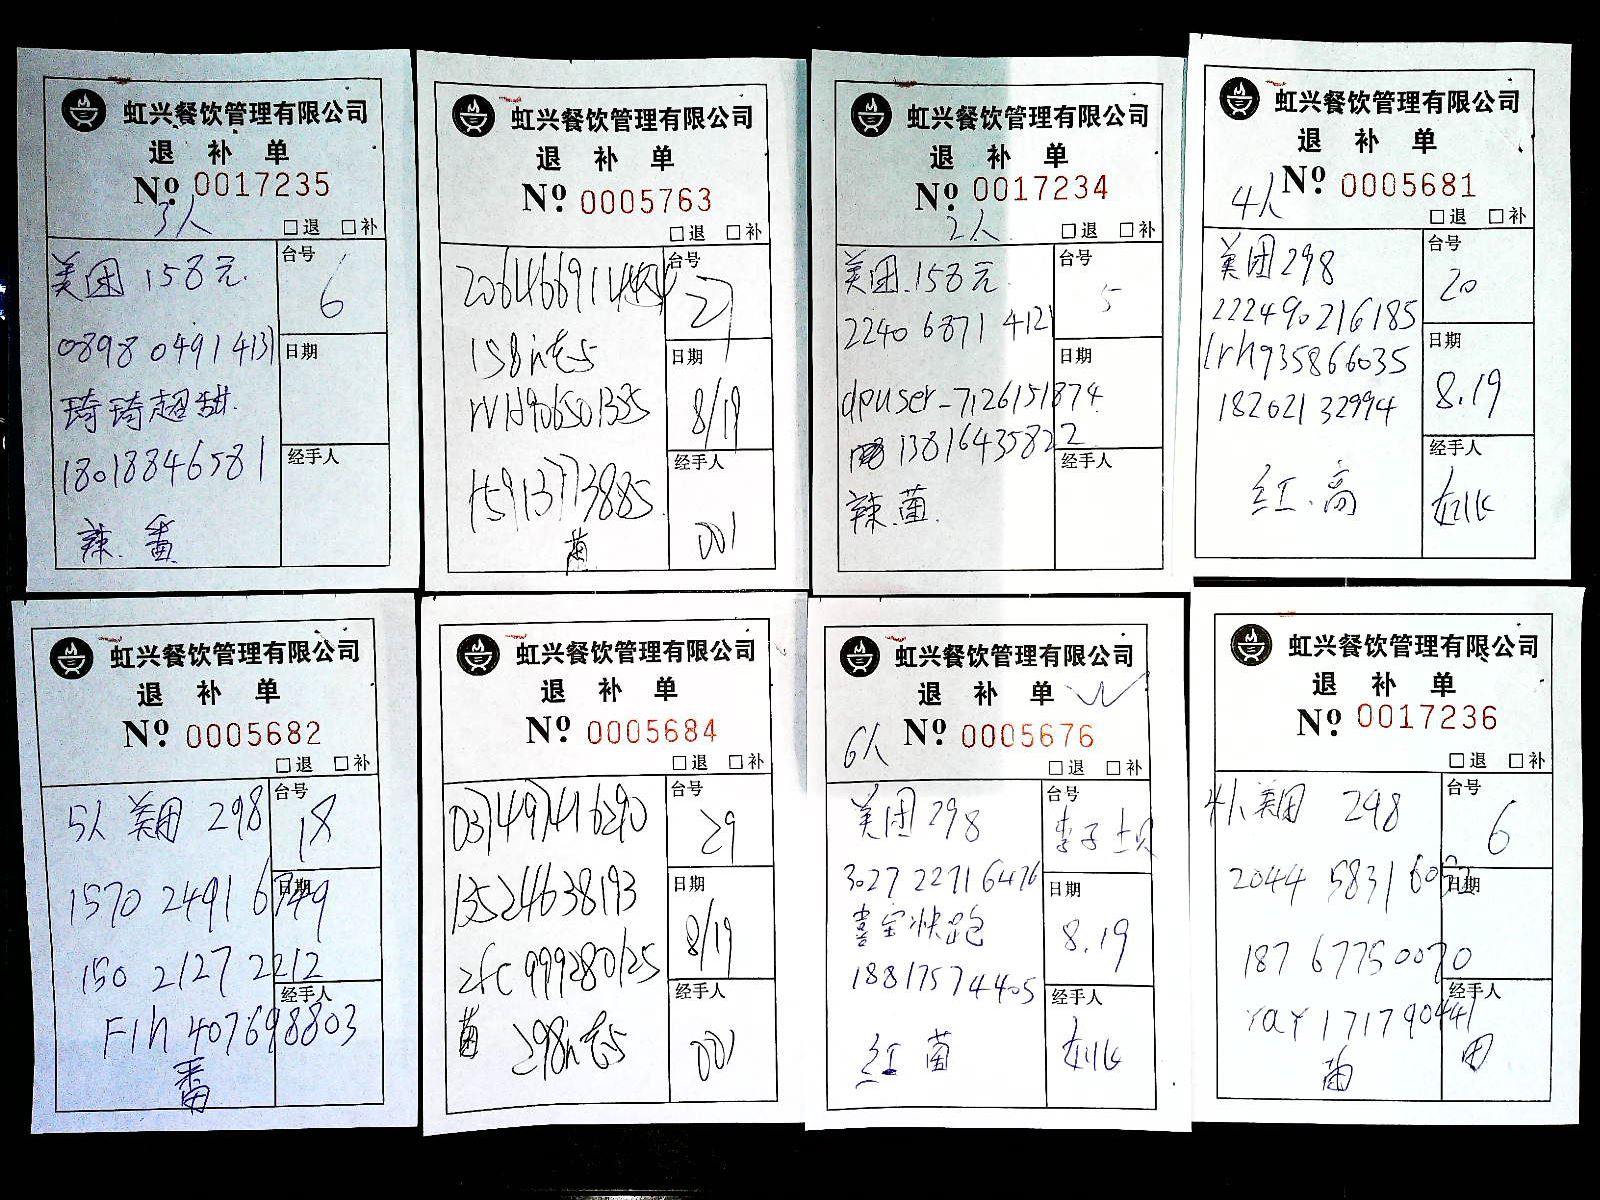 虹兴餐饮管理有限公司
退 补 单
No 0017235
3人
□退 □补
台号
6
美团 158元.
0898 0491 4131
琦琦超甜.
18018846581
日期
经手人
辣. 番
虹兴餐饮管理有限公司
退 补 单
No 0005763
□退 □补
台号
27
158
日期
8/19
15913773885
经手人
001
菌
虹兴餐饮管理有限公司
退 补 单
No 0017234
2人
□退 □补
台号
5
美团.158元
2240 6871 4121
日期
dpuser_7126151874
13816435822
经手人
辣.菌.
虹兴餐饮管理有限公司
退 补 单
No 0005681
4人
□退 □补
台号
20
美团298
222490216185
lrh935866035
18202132994
日期
8.19
经手人
红.高
虹兴餐饮管理有限公司
退 补 单
No 0005682
□退 □补
台号
18
5人 美团 298
1570 2491 6749
日期
150 2127 2212
经手人
Flh 407698803
番
虹兴餐饮管理有限公司
退 补 单
No 0005684
□退 □补
台号
29
031497416290
13524638193
日期
8/19
zfc 999280125
经手人
001
菌 298
虹兴餐饮管理有限公司
退 补 单
No 0005676
6人
□退 □补
台号
李子坝
美团298
3027 2271 6476
喜宝快跑
18817574405
日期
8.19
经手人
红 菌
虹兴餐饮管理有限公司
退 补 单
No 0017236
□退 □补
台号
6
4人 美团 298
2044 5831
日期
187 67750070
经手人
yay 171790441
菌